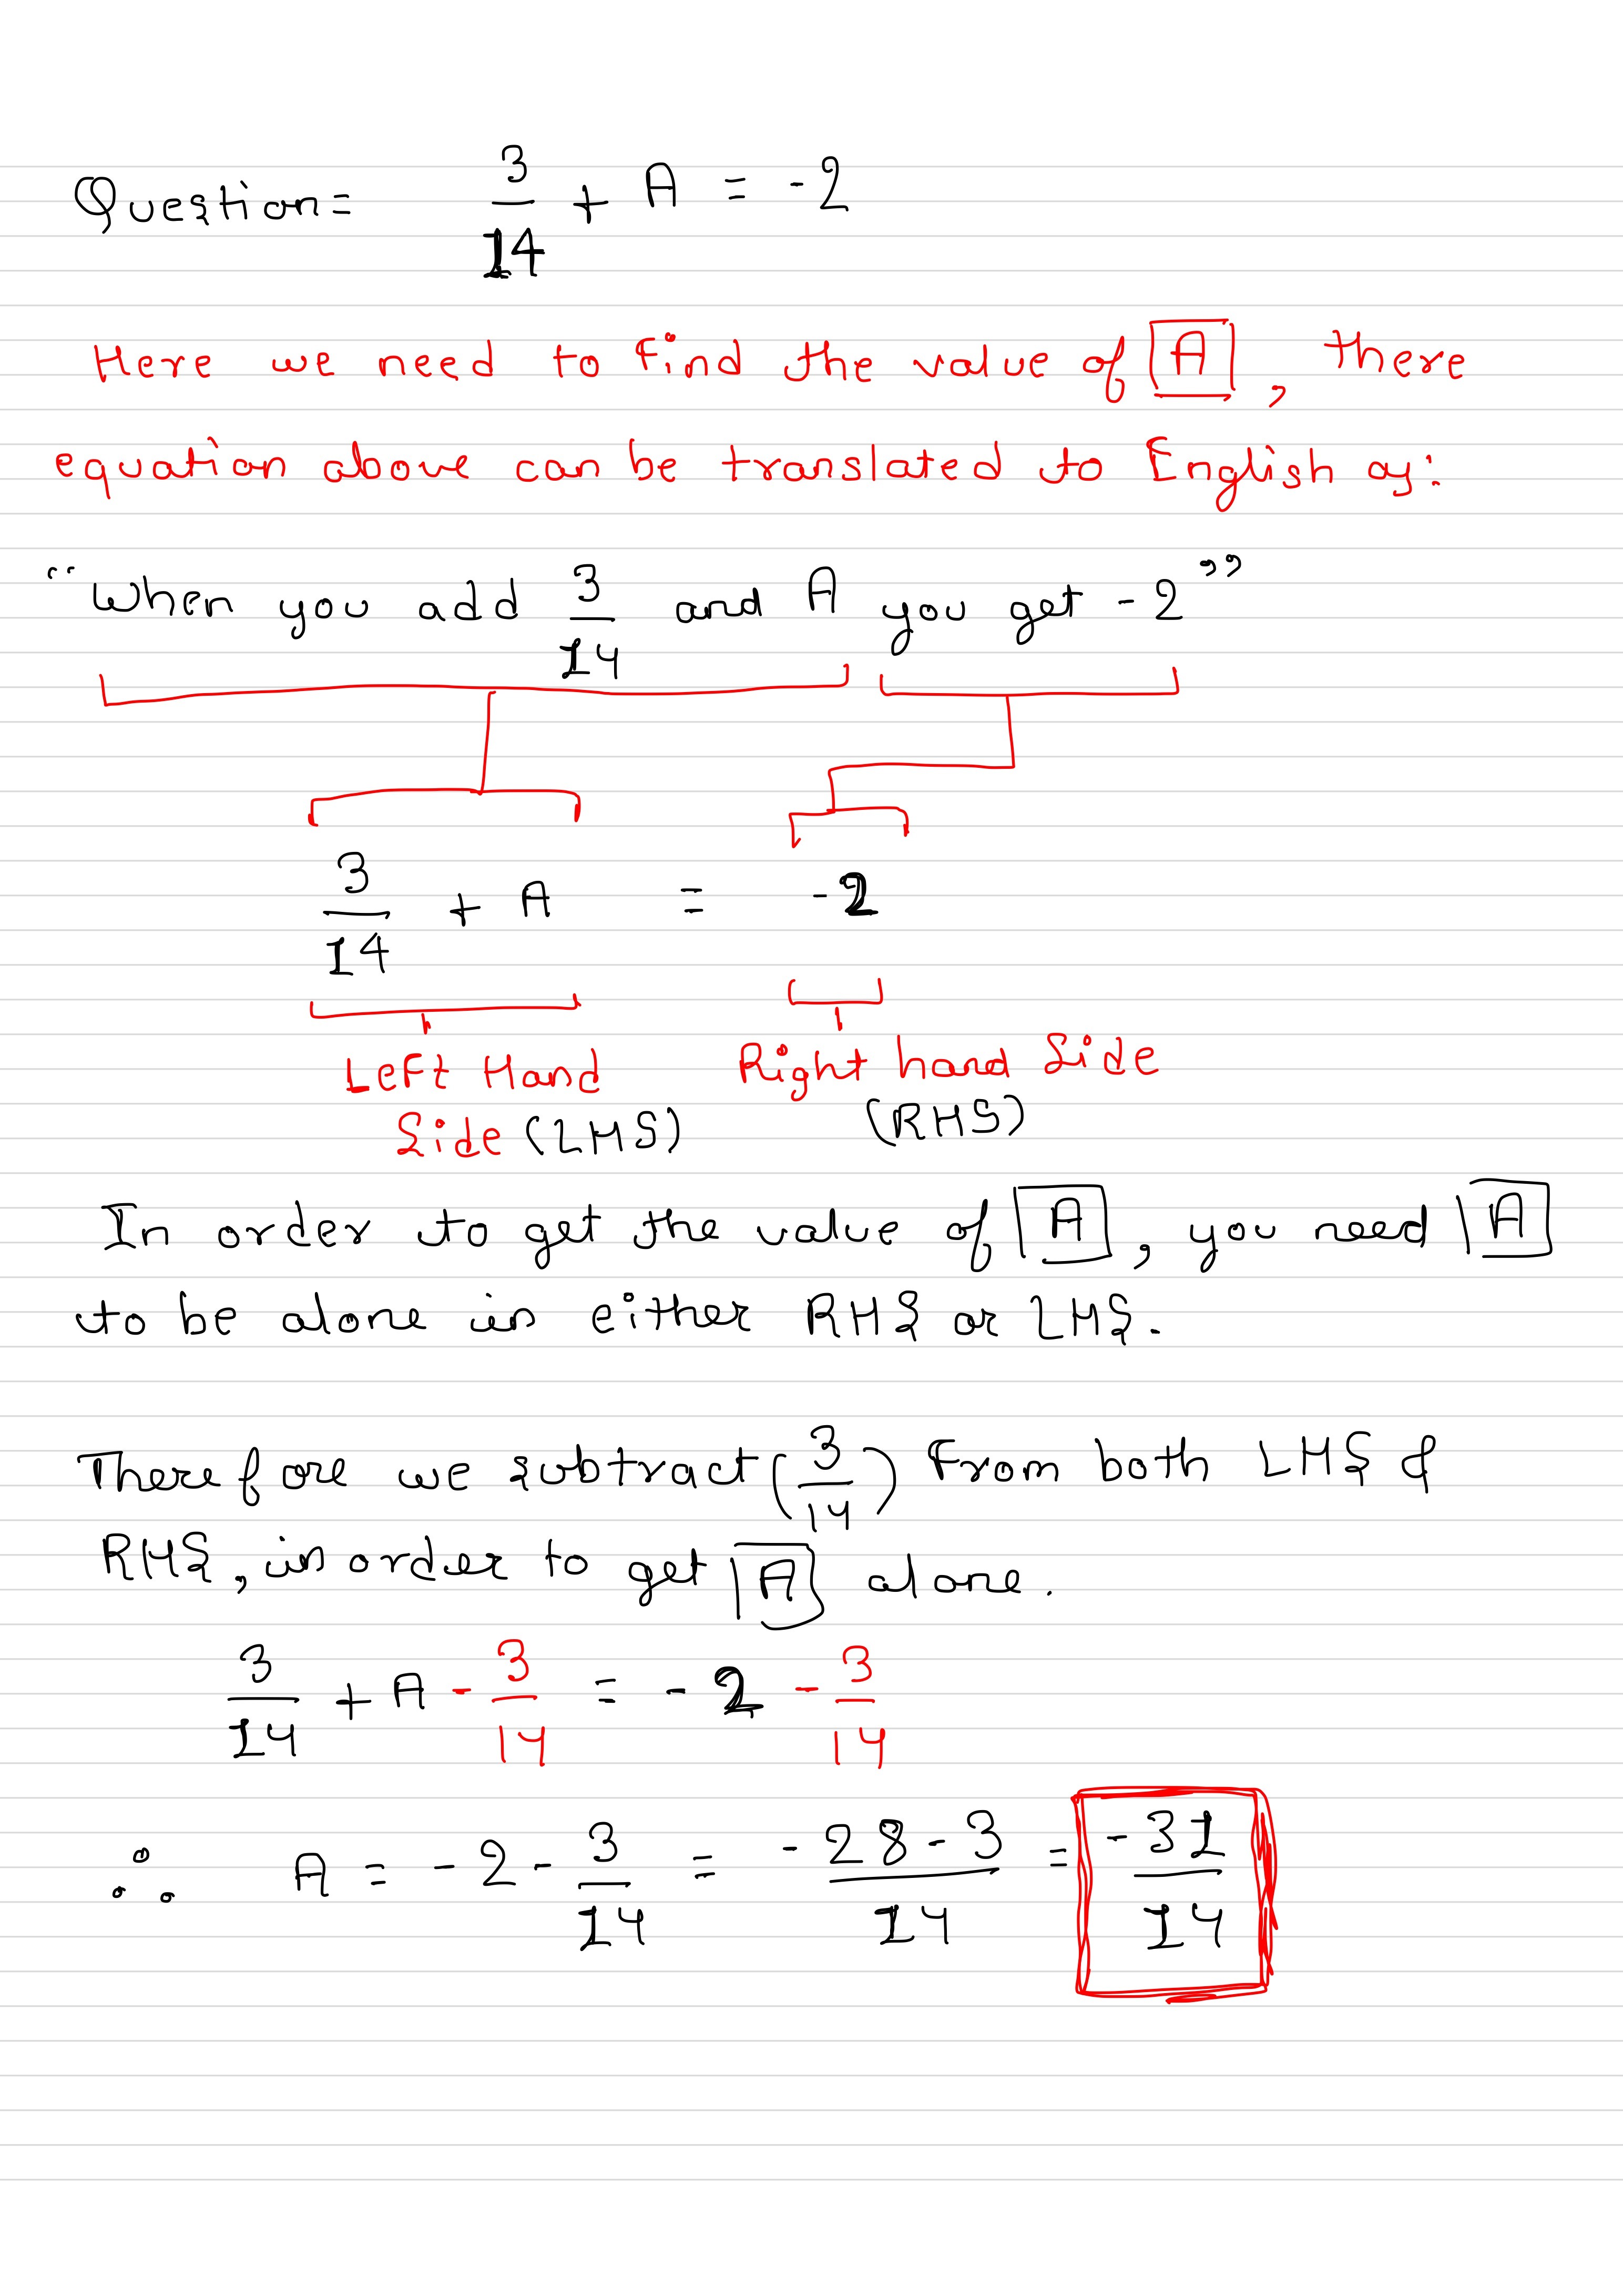 Question= 3/14 + A = -2
Here we need to find the value of A, there
equation above can be translated to English as:
"When you add 3/14 and A you get -2"
3/14 + A = -2
Left Hand Right hand Side
Side (LHS) (RHS)
In order to get the value of A, you need A
to be alone in either RHS or LHS.
Therefore we subtract (3/14) from both LHS &
RHS, in order to get A alone.
3/14 + A - 3/14 = -2 - 3/14
∴ A = -2 - 3/14 = -28-3/14 = -31/14